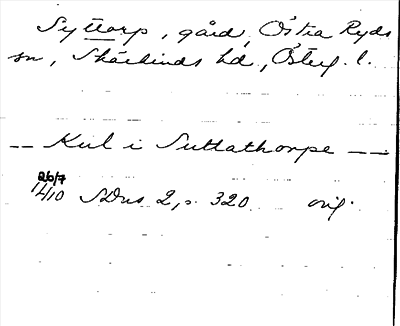 Syttorp, gård, Östra Ryds
sn, Skärkinds hd, Österg. l.
__ Kul i Suttathorpe __ __
26/7
14/10 SDns 2, s. 320. orig.